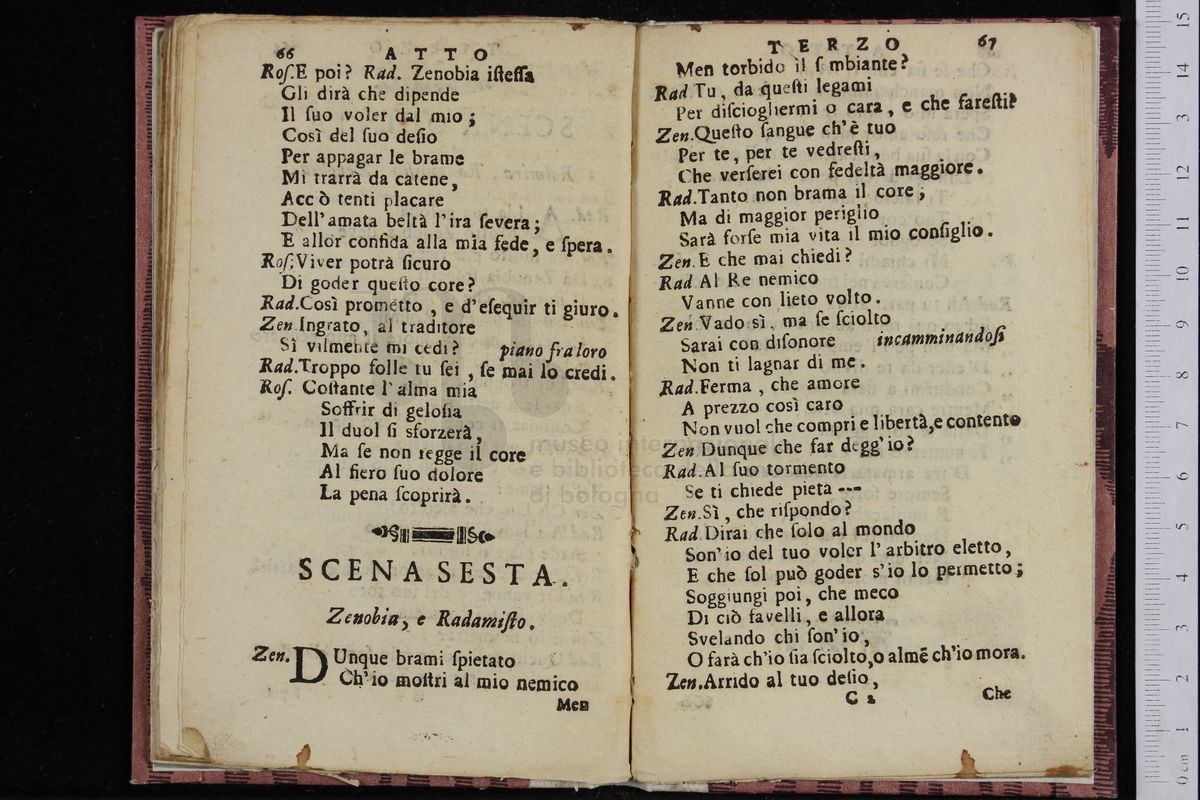 66 ATTO
Roſ.E poi? Rad. Zenobia iſteſſa
Gli dirà che dipende
Il ſuo voler dal mio;
Così del ſuo deſio
Per appagar le brame
Mi trarrà da catene,
Acc ò tenti placare
Dell'amata beltà l'ira ſevera;
E allor confida alla mia fede, e ſpera.
Roſ.Viver potrà ſicuro
Di goder queſto core?
Rad.Così prometto, e d'eſequir ti giuro.
Zen.Ingrato, al traditore
Sì vilmente mi cedi? piano fra loro
Rad.Troppo folle tu ſei, ſe mai lo credi.
Roſ. Coſtante l'alma mia
Soffrir di geloſia
Il duol ſi sforzerà,
Ma ſe non regge il core
Al fiero ſuo dolore
La pena ſcoprirà.
SCENA SESTA.
Zenobia, e Radamiſto.
Zen. DUnque brami ſpietato
Ch'io moſtri al mio nemico
Men
TERZO 67
Men torbido il ſ mbiante?
Rad Tu, da queſti legami
Per diſciogliermi o cara, e che fareſti?
Zen.Queſto ſangue ch'è tuo
Per te, per te vedreſti,
Che verſerei con fedeltà maggiore.
Rad.Tanto non brama il core;
Ma di maggior periglio
Sarà forſe mia vita il mio conſiglio.
Zen.E che mai chiedi?
Rad.Al Re nemico
Vanne con lieto volto.
Zen.Vado sì, ma ſe ſciolto
Sarai con diſonore incamminandoſi
Non ti lagnar di me.
Rad.Ferma, che amore
A prezzo così caro
Non vuol che compri e libertà,e contento
Zen.Dunque che far degg'io?
Rad.Al ſuo tormento
Se ti chiede pieta ---
Zen.Sì, che riſpondo?
Rad.Dirai che ſolo al mondo
Son'io del tuo voler l'arbitro eletto,
E che ſol può goder s'io lo permetto;
Soggiungi poi, che meco
Di ciò favelli, e allora
Svelando chi ſon'io,
O farà ch'io ſia ſciolto,o almẽ ch'io mora.
Zen.Arrido al tuo deſio,
C 2 Che
museo internazionale
e biblioteca
di bologna
0 cm 1 2 3 4 5 6 7 8 9 10 11 12 13 14 15